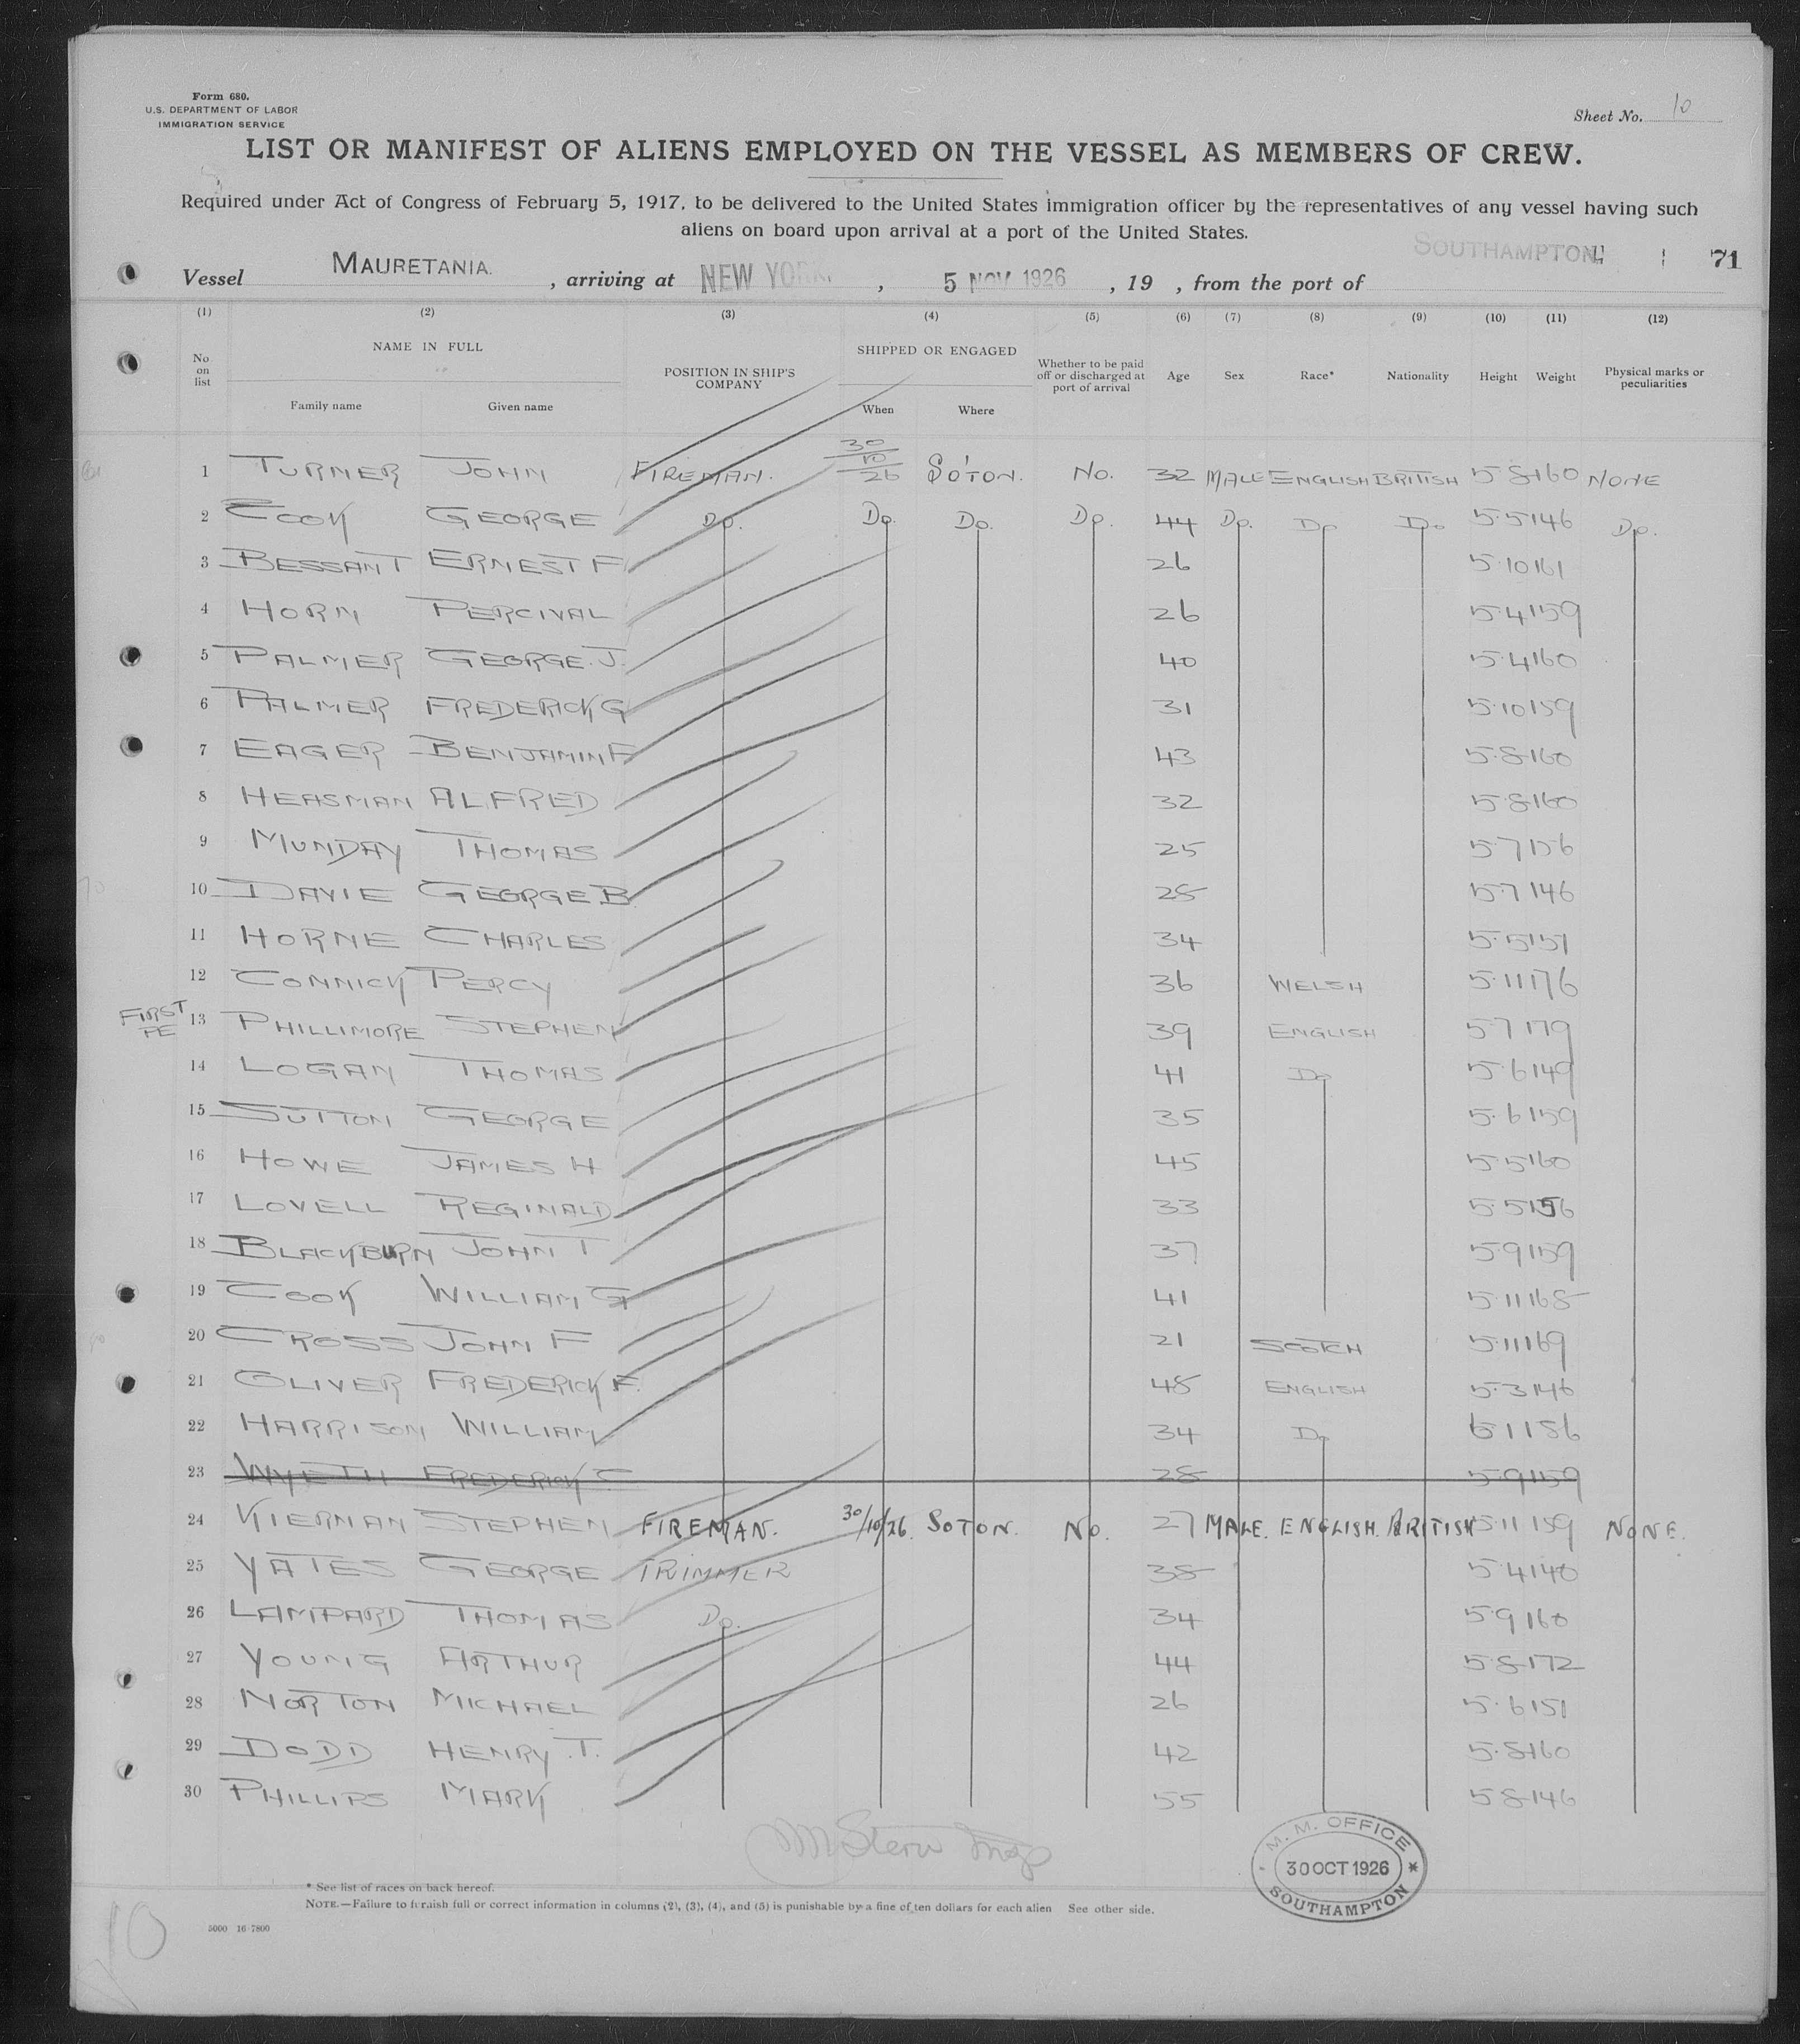 Form 680.
U.S. DEPARTMENT OF LABOR
IMMIGRATION SERVICE
Sheet No. 10
LIST OR MANIFEST OF ALIENS EMPLOYED ON THE VESSEL AS MEMBERS OF CREW.
Required under Act of Congress of February 5, 1917, to be delivered to the United States immigration officer by the representatives of any vessel having such
aliens on board upon arrival at a port of the United States.
Vessel MAURETANIA. , arriving at NEW YORK. , 5 NOV 1926 , 19 , from the port of SOUTHAMPTON 71
(1) (2) (3) (4) (5) (6) (7) (8) (9) (10) (11) (12)
No on list NAME IN FULL POSITION IN SHIP'S COMPANY SHIPPED OR ENGAGED Whether to be paid off or discharged at port of arrival Age Sex Race* Nationality Height Weight Physical marks or peculiarities
Family name Given name When Where
1 TURNER JOHN FIREMAN. 30/10/26 SO'TON. NO. 32 MALE ENGLISH BRITISH 5·8 160 NONE
2 COOK GEORGE DO. DO. DO. DO. 44 DO. DO DO. 5·5 146 DO.
3 BESSANT ERNEST F 26 5·10 161
4 HORN PERCIVAL 26 5·4 159
5 PALMER GEORGE. J. 40 5·4 160
6 PALMER FREDERICK G 31 5·10 159
7 EAGER BENJAMIN F 43 5·8 160
8 HEASMAN ALFRED 32 5·8 160
9 MUNDAY THOMAS 25 5·7 156
10 DAVIE GEORGE B. 28 5·7 146
11 HORNE CHARLES 34 5·5 151
12 CONNICK PERCY 36 WELSH 5·11 176
FIRST 13 PHILLIMORE STEPHEN 39 ENGLISH 5·7 179
14 LOGAN THOMAS 41 DO 5·6 149
15 SUTTON GEORGE 35 5·6 159
16 HOWE JAMES H 45 5·5 160
17 LOVELL REGINALD 33 5·5 156
18 BLACKBURN JOHN T 37 5·9 159
19 COOK WILLIAM G 41 5·11 168
20 CROSS JOHN F 21 SCOTCH 5·11 169
21 OLIVER FREDERICK F. 48 ENGLISH 5·3 146
22 HARRISON WILLIAM 34 DO 6·1 186
23 WYETH FREDERICK C 28 5·9 159
24 KIERNAN STEPHEN FIREMAN. 30/10/26. SOTON. NO. 27 MALE. ENGLISH. BRITISH 5·11 159 NONE.
25 YATES GEORGE TRIMMER 38 5·4 140
26 LAMPARD THOMAS DO. 34 5·9 160
27 YOUNG ARTHUR 44 5·8 172
28 NORTON MICHAEL 26 5·6 151
29 DODD HENRY. T. 42 5·8 160
30 PHILLIPS MARK 55 5·8 146
M. M. OFFICE
30 OCT 1926
SOUTHAMPTON
* See list of races on back hereof.
NOTE.—Failure to furnish full or correct information in columns (2), (3), (4), and (5) is punishable by a fine of ten dollars for each alien See other side.
5000 16-7800
10